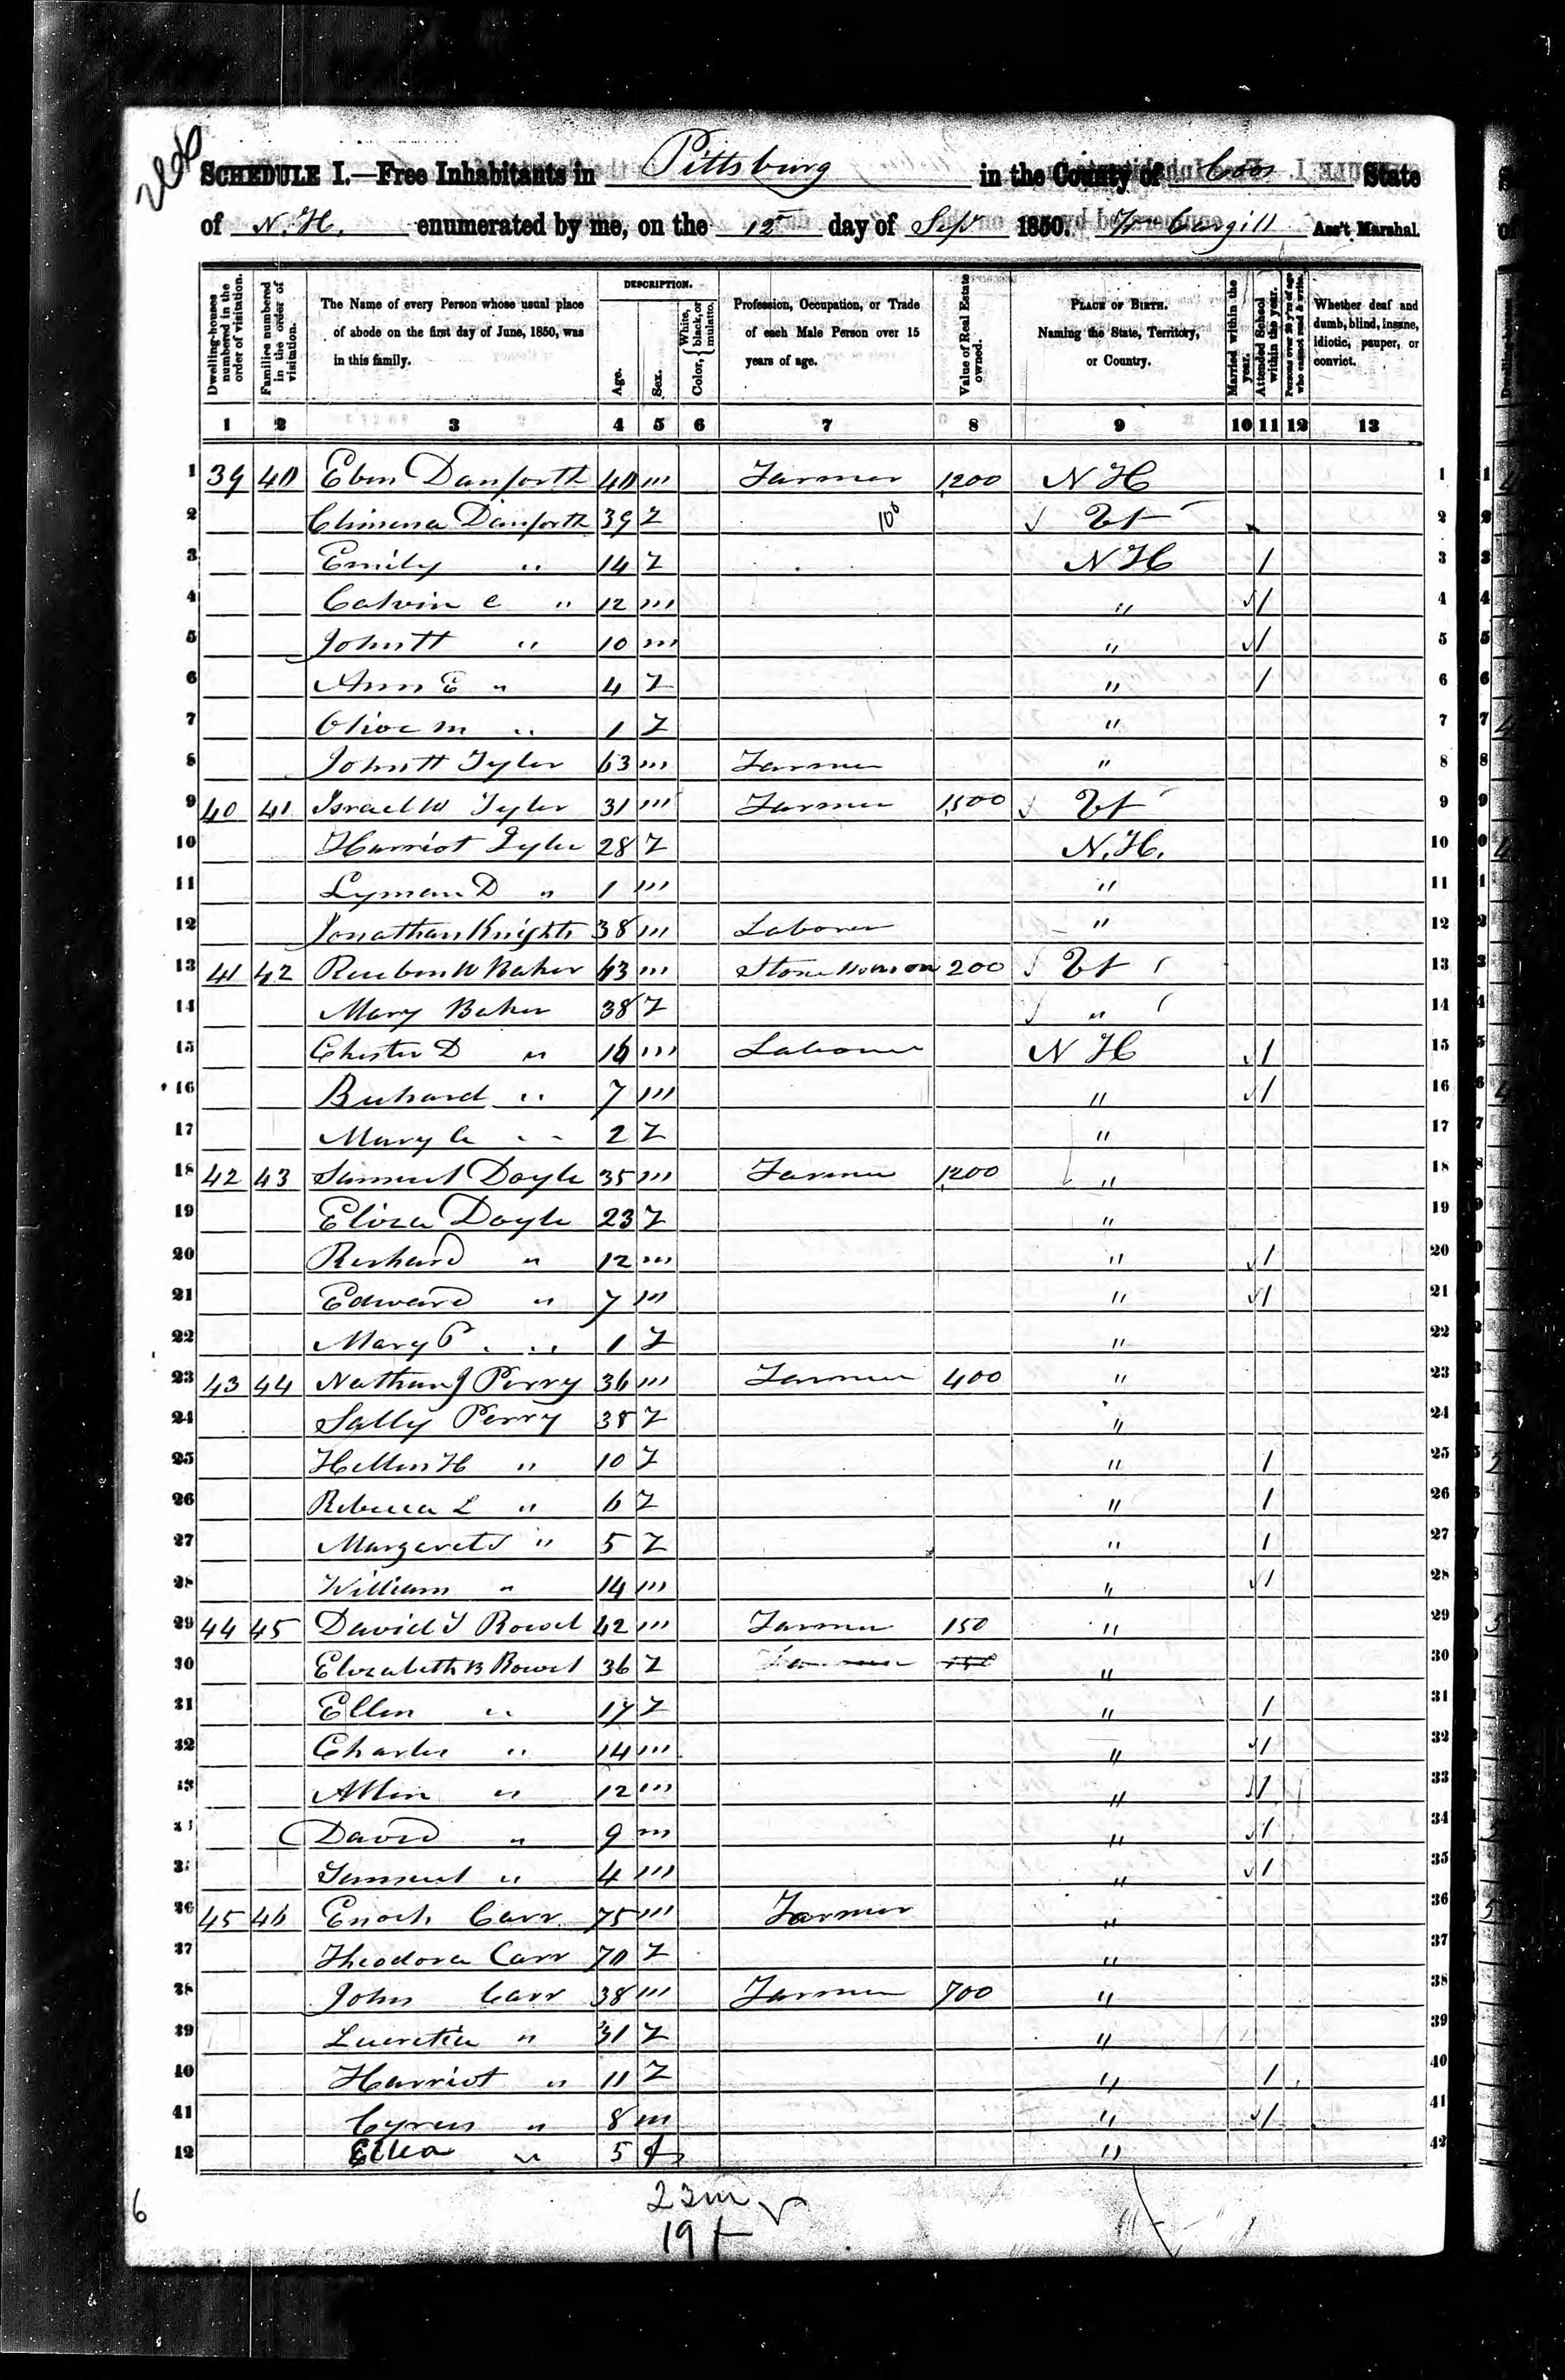 SCHEDULE I.—Free Inhabitants in Pittsburg in the County of Coos State
of N.H. enumerated by me, on the 12 day of Sep 1850. Cargill Ass't Marshal.
Dwelling-houses numbered in the order of visitation.
Families numbered in the order of visitation.
The Name of every Person whose usual place of abode on the first day of June, 1850, was in this family.
DESCRIPTION.
Age.
Sex.
Color, { White, black, or mulatto.
Profession, Occupation, or Trade of each Male Person over 15 years of age.
Value of Real Estate owned.
PLACE OF BIRTH.
Naming the State, Territory, or Country.
Married within the year.
Attended School within the year.
Persons over 20 y'rs of age who cannot read & write.
Whether deaf and dumb, blind, insane, idiotic, pauper, or convict.
1 2 3 4 5 6 7 8 9 10 11 12 13
1 39 40 Eben Danforth 40 m Farmer 1200 N H 1
2 Danforth 39 f 100 Vt 2
3 Emily " 14 f N H / 3
4 Calvin C " 12 m " / 4
5 John H " 10 m " / 5
6 Ann E " 4 f " / 6
7 Olive M " 1 f " 7
8 John H Tyler 63 m Farmer " 8
9 40 41 Israel W Tyler 31 m Farmer 1500 Vt 9
10 Harriot Tyler 28 f N.H. 10
11 Lyman D " 1 m " 11
12 Jonathan Knights 38 m Laborer " 12
13 41 42 Reuben W Baker 43 m Stone Mason 200 Vt 13
14 Mary Baker 38 f " 14
15 Chester D " 16 m Laborer N H / 15
16 " 7 m " / 16
17 Mary " 2 f " 17
18 42 43 Samuel Doyle 35 m Farmer 1200 " 18
19 Eliza Doyle 23 f " 19
20 Richard " 12 m " / 20
21 Edward " 7 m " / 21
22 Mary P " 1 f " 22
23 43 44 Nathan J Perry 36 m Farmer 400 " 23
24 Sally Perry 38 f " 24
25 Hellen H " 10 f " / 25
26 Rebecca L " 6 f " / 26
27 Margaret S " 5 f " / 27
28 William " 14 m " / 28
29 44 45 David T Rowel 42 m Farmer 150 " 29
30 Elizabeth B Rowel 36 f Farmer 150 " 30
31 Ellen " 17 f " / 31
32 Charles " 14 m " / 32
33 Allen " 12 m " / 33
34 David " 9 m " / 34
35 Samuel " 4 m " / 35
36 45 46 Enoch Carr 75 m Farmer " 36
37 Theodora Carr 70 f " 37
38 John Carr 38 m Farmer 700 " 38
39 Lucretia " 31 f " 39
40 Harriot " 11 f " / 40
41 Cyrus " 8 m " / 41
42 " 5 f " 42
23 m
19 f
6